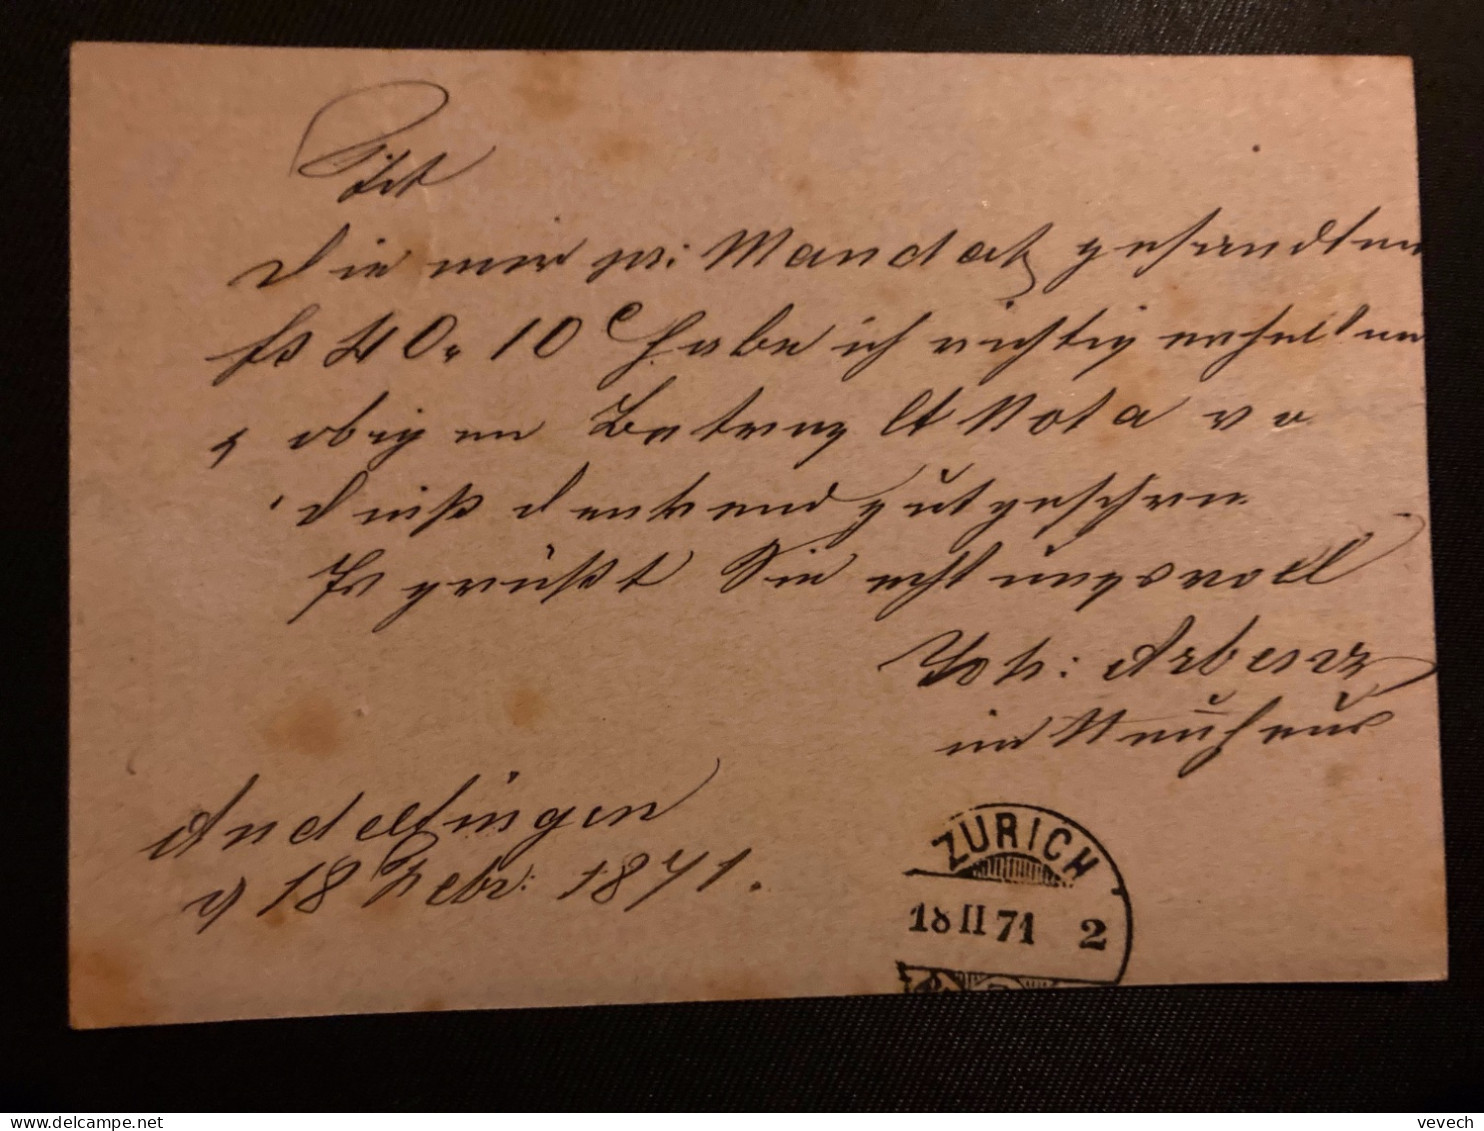 Tit
Die mir pr: Mandat gesandten
fs 40. 10 c habe ich richtig erhalten
obigen Betrag lt Nota vo
dieß dankend gutgeschrie
Es grüßt Sie achtungsvoll
Joh: Arbenz
in Neuhaus
Andelfingen
18 Febr: 1871.
ZURICH
18 II 71 2
vevech